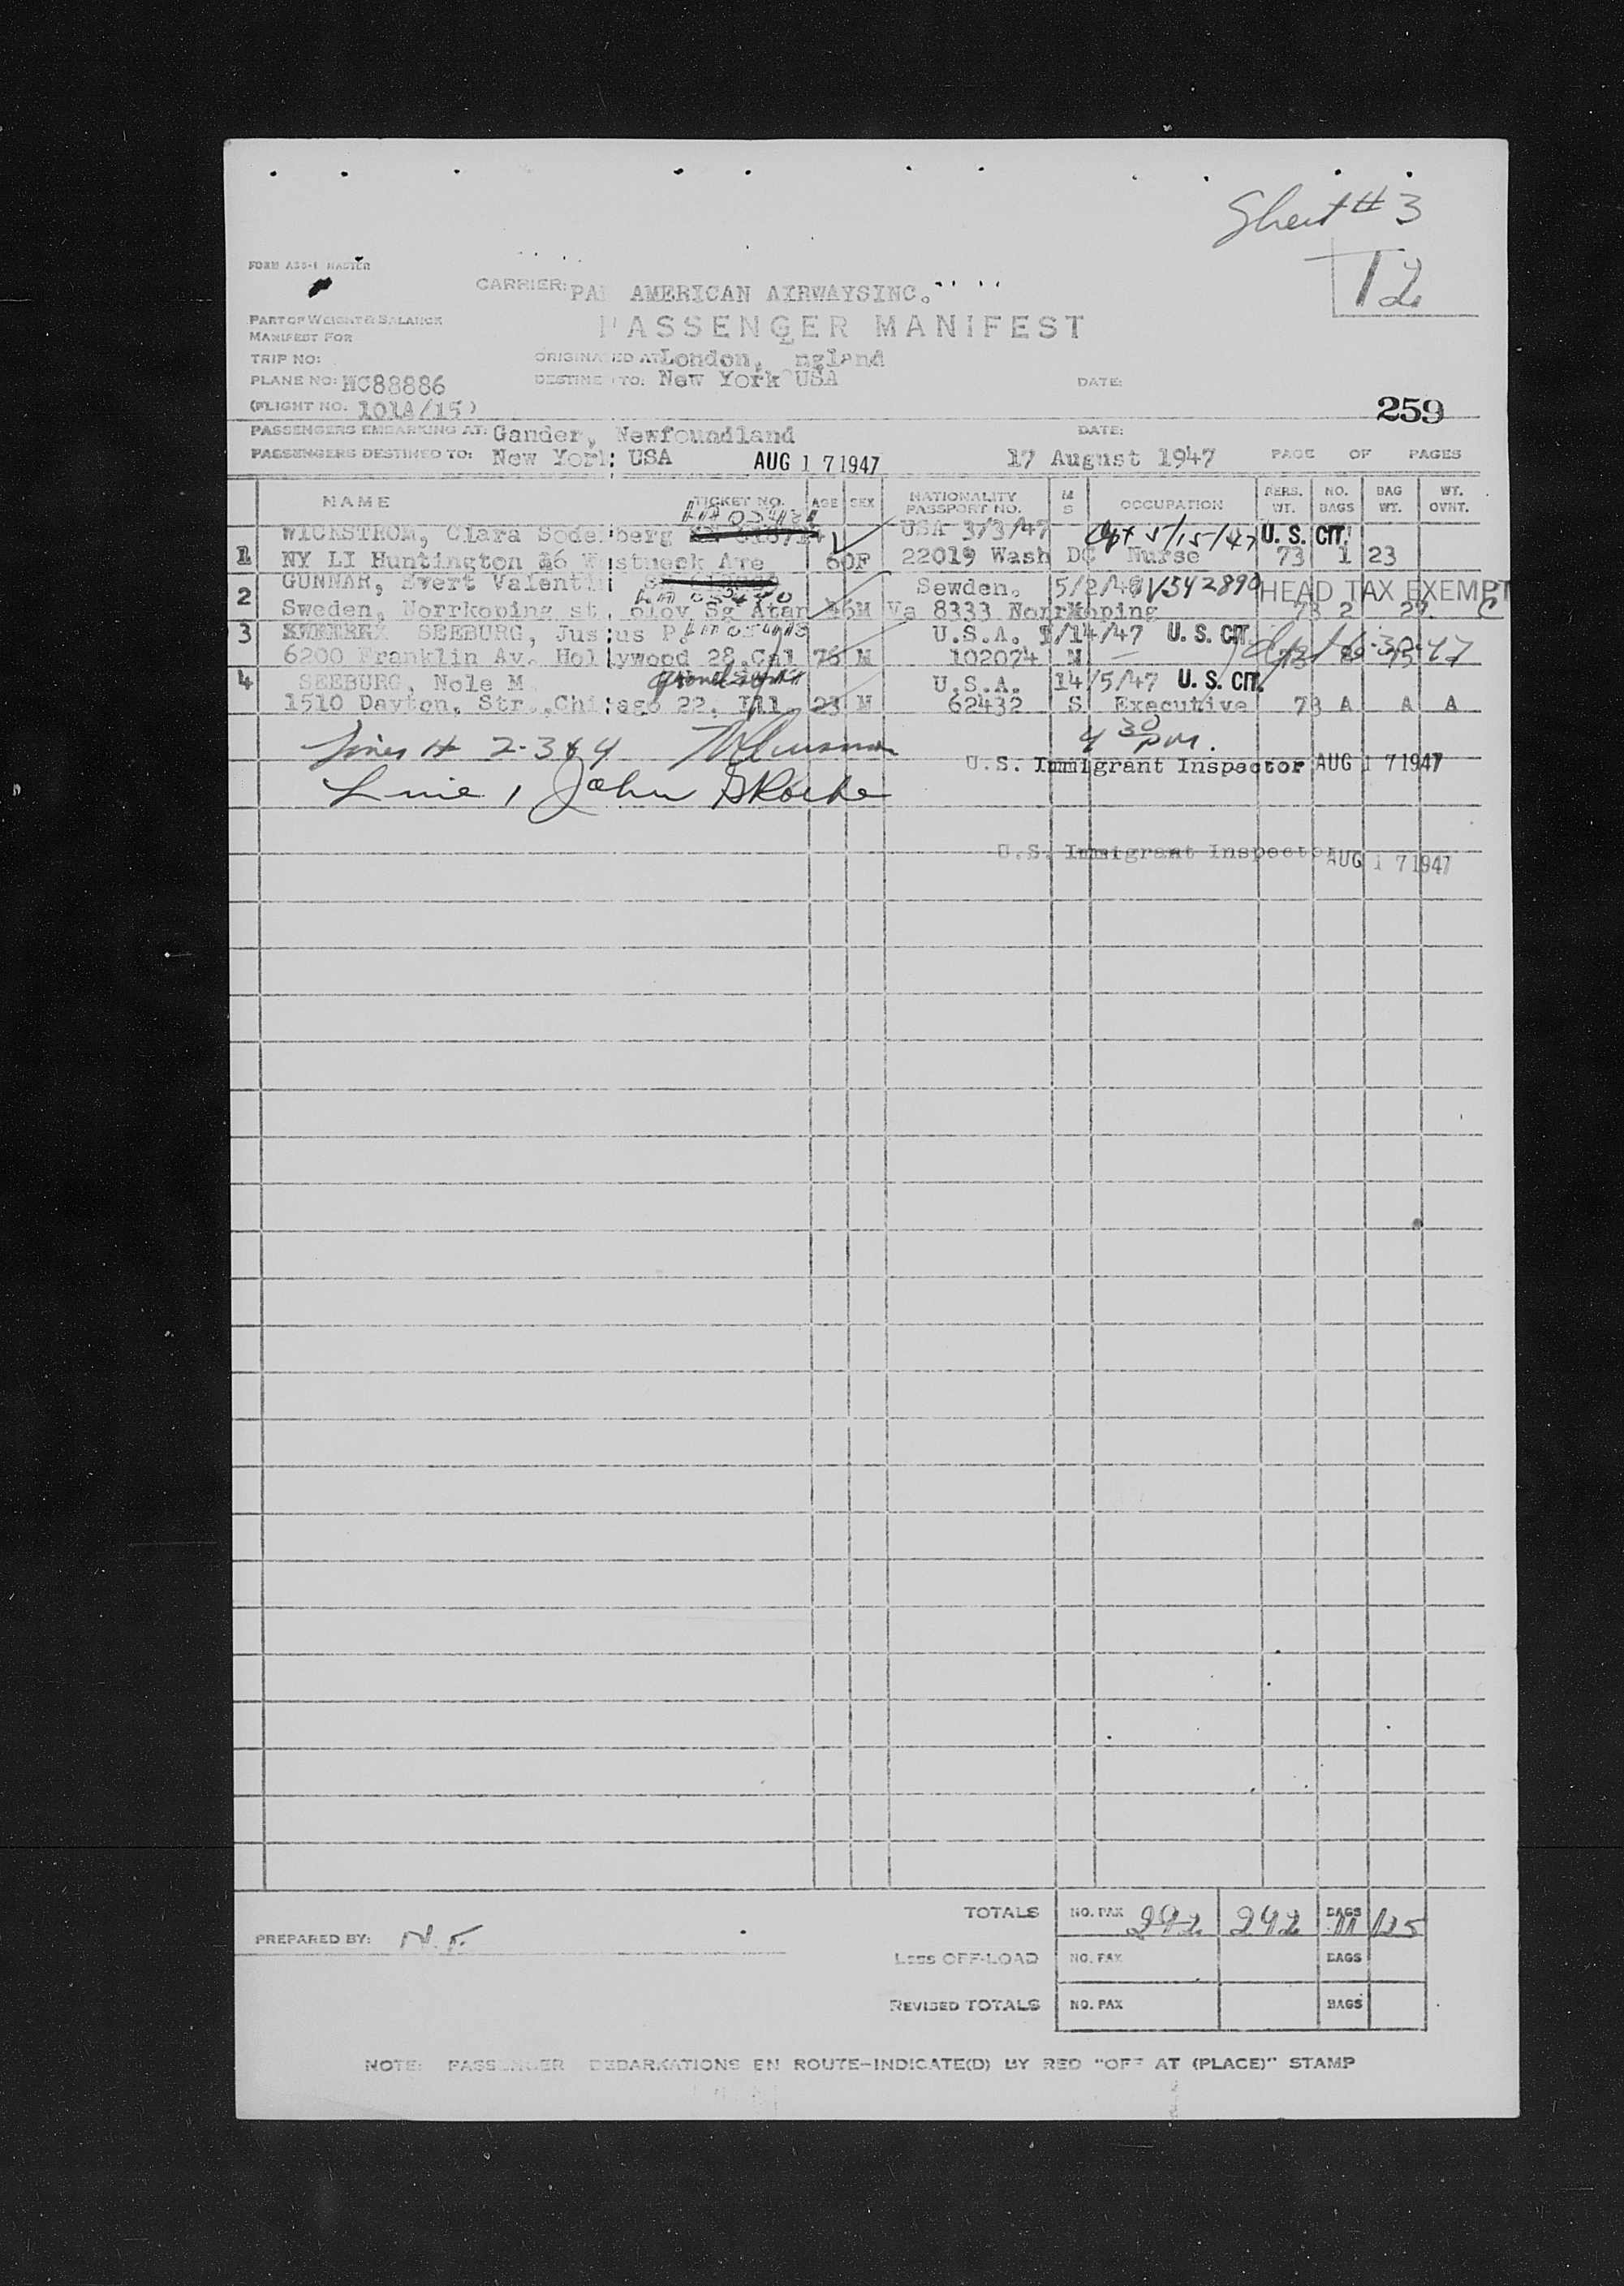 Sheet # 3
12
FORM ASS-1 MASTER
CARRIER: PAN AMERICAN AIRWAYSINC.
PART OF WEIGHT & BALANCE
MANIFEST FOR
PASSENGER MANIFEST
TRIP NO:
ORIGINATED AT London, ngland
PLANE NO: NC88886
DESTINED TO: New York USA
DATE:
(FLIGHT NO. 101A/15)
259
PASSENGERS EMBARKING AT: Gander, Newfoundland
DATE:
PASSENGERS DESTINED TO: New York USA AUG 17 1947 17 August 1947 PAGE OF PAGES
NAME TICKET NO. AGE SEX NATIONALITY PASSPORT NO. M S OCCUPATION PERS. WT. NO. BAGS BAG WT. WT. OVNT.
WICKSTROM, Clara Soderberg USA 3/3/47 Dpt 5/15/47 U. S. CIT.
1 NY LI Huntington 26 Westneck Ave 60F 22019 Wash DC Nurse 73 1 23
GUNNAR, Evert Valenti Sewden. 5/2/48 V542890 HEAD TAX EXEMPT
2 Sweden, Norrkoping st. olov Sg Atan 46M Va 8333 Norrkoping 73 2 29. C
3 SEEBURG, Justus P. U.S.A. 1/14/47 U. S. CIT.
6200 Franklin Av. Hollywood 28,Cal 76 M 102074 M Dpt 6-30-47
4 SEEBURG, Nole M. U.S.A. 14/5/47 U. S. CIT.
1510 Dayton, Str.,Chicago 22, Ill. 23 M 62432 S Executive 73 A A A
Lines # 2-3&4
4 30 PM.
U.S. Immigrant Inspector AUG 17 1947
Line 1 John G Roche
U.S. Immigrant Inspector AUG 17 1947
TOTALS NO. PAX 292 292 BAGS 11 125
PREPARED BY: N.F.
LESS OFF-LOAD NO. PAX BAGS
REVISED TOTALS NO. PAX BAGS
NOTE: PASSENGER DEBARKATIONS EN ROUTE-INDICATE(D) BY RED "OFF AT (PLACE)" STAMP